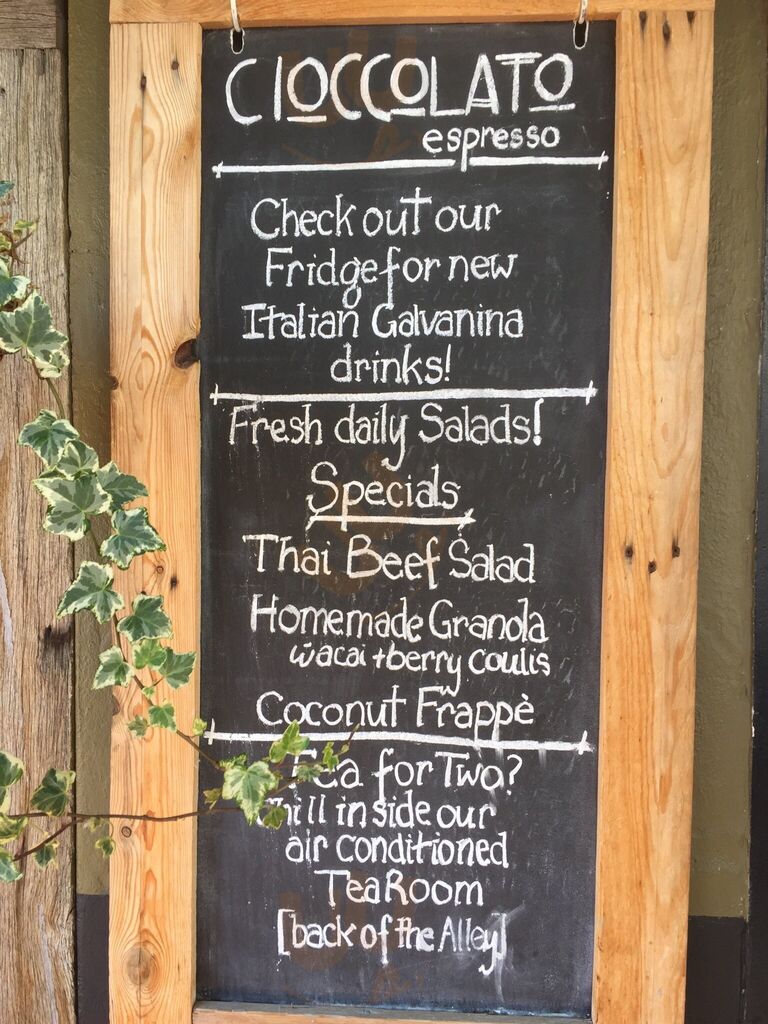 CIOCCOLATO
espresso
Check out our
Fridge for new
Italian Galvanina
drinks!
Fresh daily Salads!
Specials
Thai Beef Salad
Homemade Granola
w acai + berry coulis
Coconut Frappè
Tea for Two?
Chill inside our
air conditioned
Tea Room
[back of the Alley]